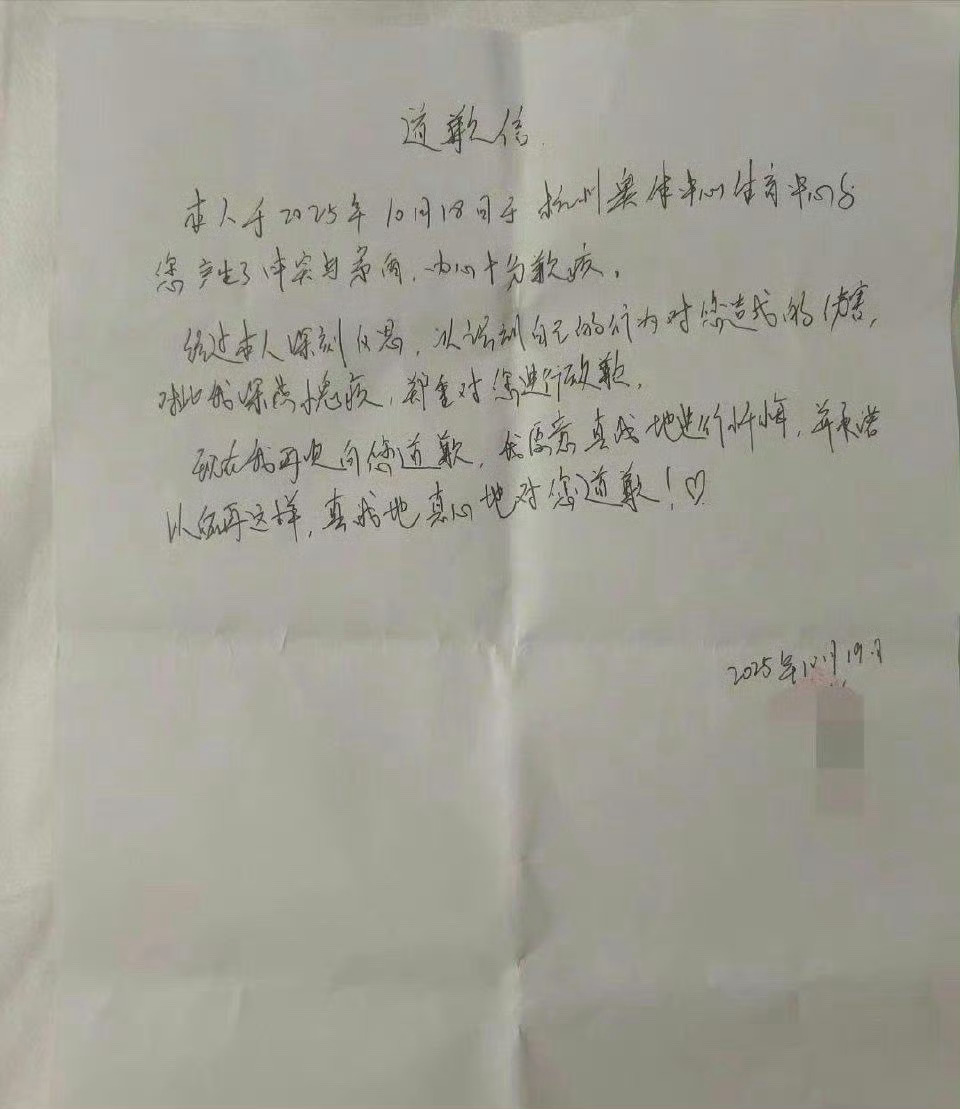 道歉信
本人于2025年10月18日于杭州奥体中心体育中心与
您产生了冲突与矛盾,内心十分歉疚。
经过本人深刻反思,认识到自己的行为对您造成的伤害,
对此我深感愧疚,郑重对您进行致歉。
现在我再次向您道歉,我愿意真诚地进行忏悔,并承诺
以后再这样,真诚地真心地对您道歉!♡
2025年10月19日